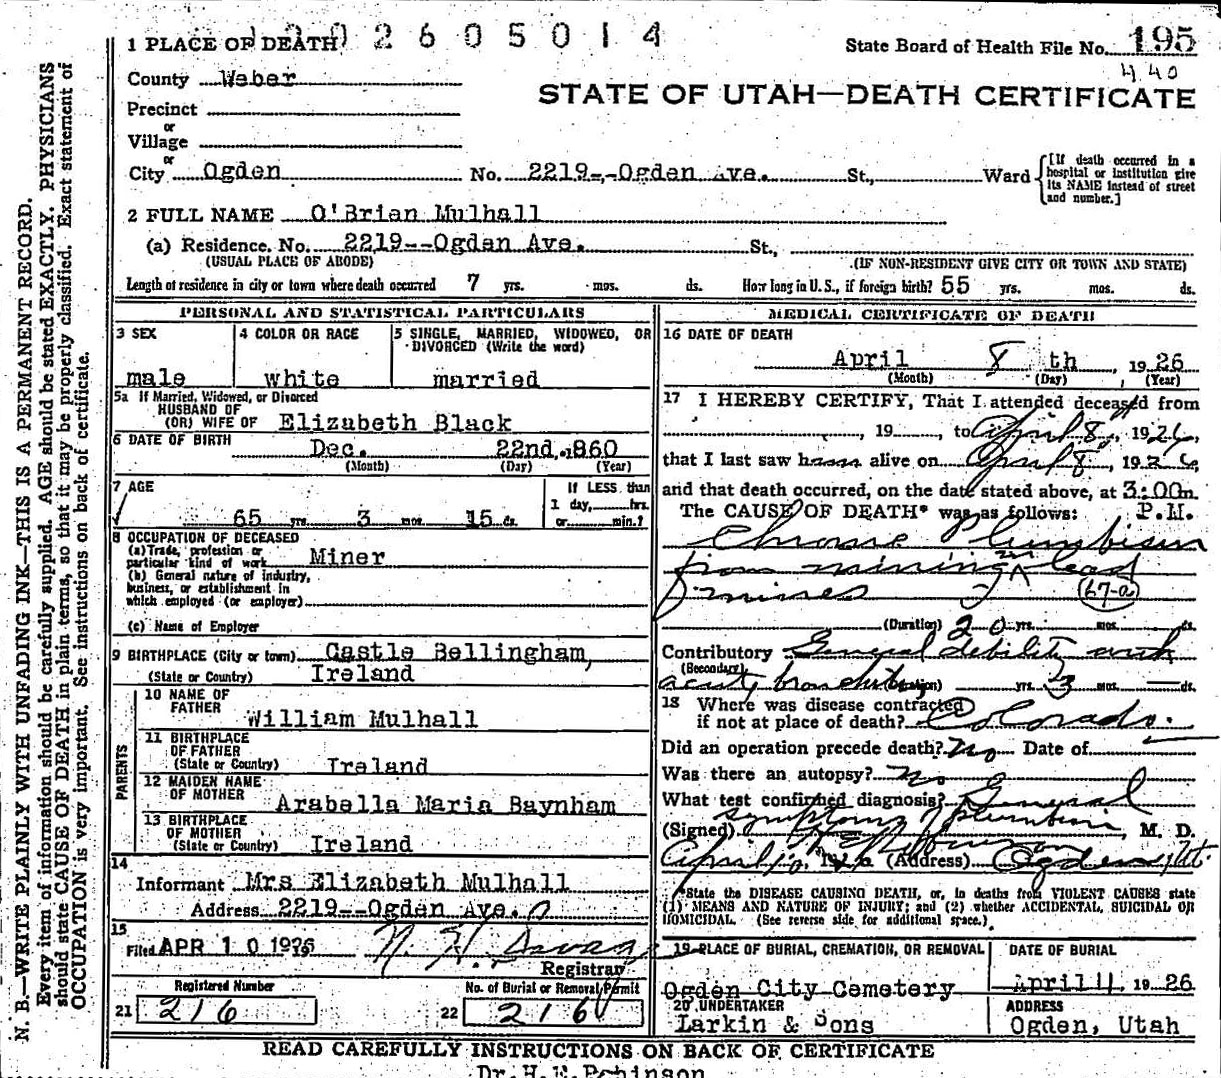 1 PLACE OF DEATH 1 2 0 2 6 0 5 0 1 4
State Board of Health File No. 195
440
County Weber
STATE OF UTAH—DEATH CERTIFICATE
Precinct
or
Village
or
City Ogden No. 2219--Ogden Ave. St., Ward
[If death occurred in a hospital or institution give its NAME instead of street and number.]
2 FULL NAME O'Brian Mulhall
(a) Residence. No. 2219--Ogden Ave. St.,
(USUAL PLACE OF ABODE) (IF NON-RESIDENT GIVE CITY OR TOWN AND STATE)
Length of residence in city or town where death occurred 7 yrs. mos. ds. How long in U.S., if foreign birth? 55 yrs. mos. ds.
PERSONAL AND STATISTICAL PARTICULARS
3 SEX
male
4 COLOR OR RACE
white
5 SINGLE, MARRIED, WIDOWED, OR
DIVORCED (Write the word)
married
5a If Married, Widowed, or Divorced
HUSBAND OF
(OR) WIFE OF Elizabeth Black
6 DATE OF BIRTH
Dec. 22nd. 1860
(Month) (Day) (Year)
7 AGE
65 yrs. 3 mos. 15 ds.
If LESS than
1 day, hrs.
or min.?
8 OCCUPATION OF DECEASED
(a) Trade, profession or
particular kind of work Miner
(b) General nature of industry,
business, or establishment in
which employed (or employer)
(c) Name of Employer
9 BIRTHPLACE (City or town) Castle Bellingham,
(State or Country) Ireland
PARENTS
10 NAME OF
FATHER
William Mulhall
11 BIRTHPLACE
OF FATHER
(State or Country) Ireland
12 MAIDEN NAME
OF MOTHER
Arabella Maria Baynham
13 BIRTHPLACE
OF MOTHER
(State or Country) Ireland
14
Informant Mrs Elizabeth Mulhall
Address 2219--Ogden Ave.
15
Filed APR 10 1926 N. H. Savage
Registrar
Registered Number
21 216
No. of Burial or Removal Permit
22 216
MEDICAL CERTIFICATE OF DEATH
16 DATE OF DEATH
April 8 th, 1926
(Month) (Day) (Year)
17 I HEREBY CERTIFY, That I attended deceased from
, 19 , to April 8, 1926,
that I last saw h alive on April 8, 1926,
and that death occurred, on the date stated above, at 3:00m.
The CAUSE OF DEATH* was as follows: P.M.
Chronic Plumbism
from mining in lead
mines 67-a
(Duration) 20 yrs. mos. ds.
Contributory General debility with
(Secondary)
acute bronchitis (Duration) yrs. 3 mos. ds.
18 Where was disease contracted
if not at place of death? Colorado.
Did an operation precede death? No Date of
Was there an autopsy? No
What test confirmed diagnosis? General
symptoms of plumbism
(Signed) H E Robinson, M. D.
April 10, 1926 (Address) Ogden, Ut.
*State the DISEASE CAUSING DEATH, or, in deaths from VIOLENT CAUSES state
(1) MEANS AND NATURE OF INJURY; and (2) whether ACCIDENTAL, SUICIDAL OR
HOMICIDAL. (See reverse side for additional space.)
19 PLACE OF BURIAL, CREMATION, OR REMOVAL
Ogden City Cemetery
DATE OF BURIAL
April 11 1926
20 UNDERTAKER
Larkin & Sons
ADDRESS
Ogden, Utah
READ CAREFULLY INSTRUCTIONS ON BACK OF CERTIFICATE
Dr. H. E. Robinson
N. B.—WRITE PLAINLY WITH UNFADING INK—THIS IS A PERMANENT RECORD.
Every item of information should be carefully supplied. AGE should be stated EXACTLY. PHYSICIANS
should state CAUSE OF DEATH in plain terms, so that it may be properly classified. Exact statement of
OCCUPATION is very important. See instructions on back of certificate.